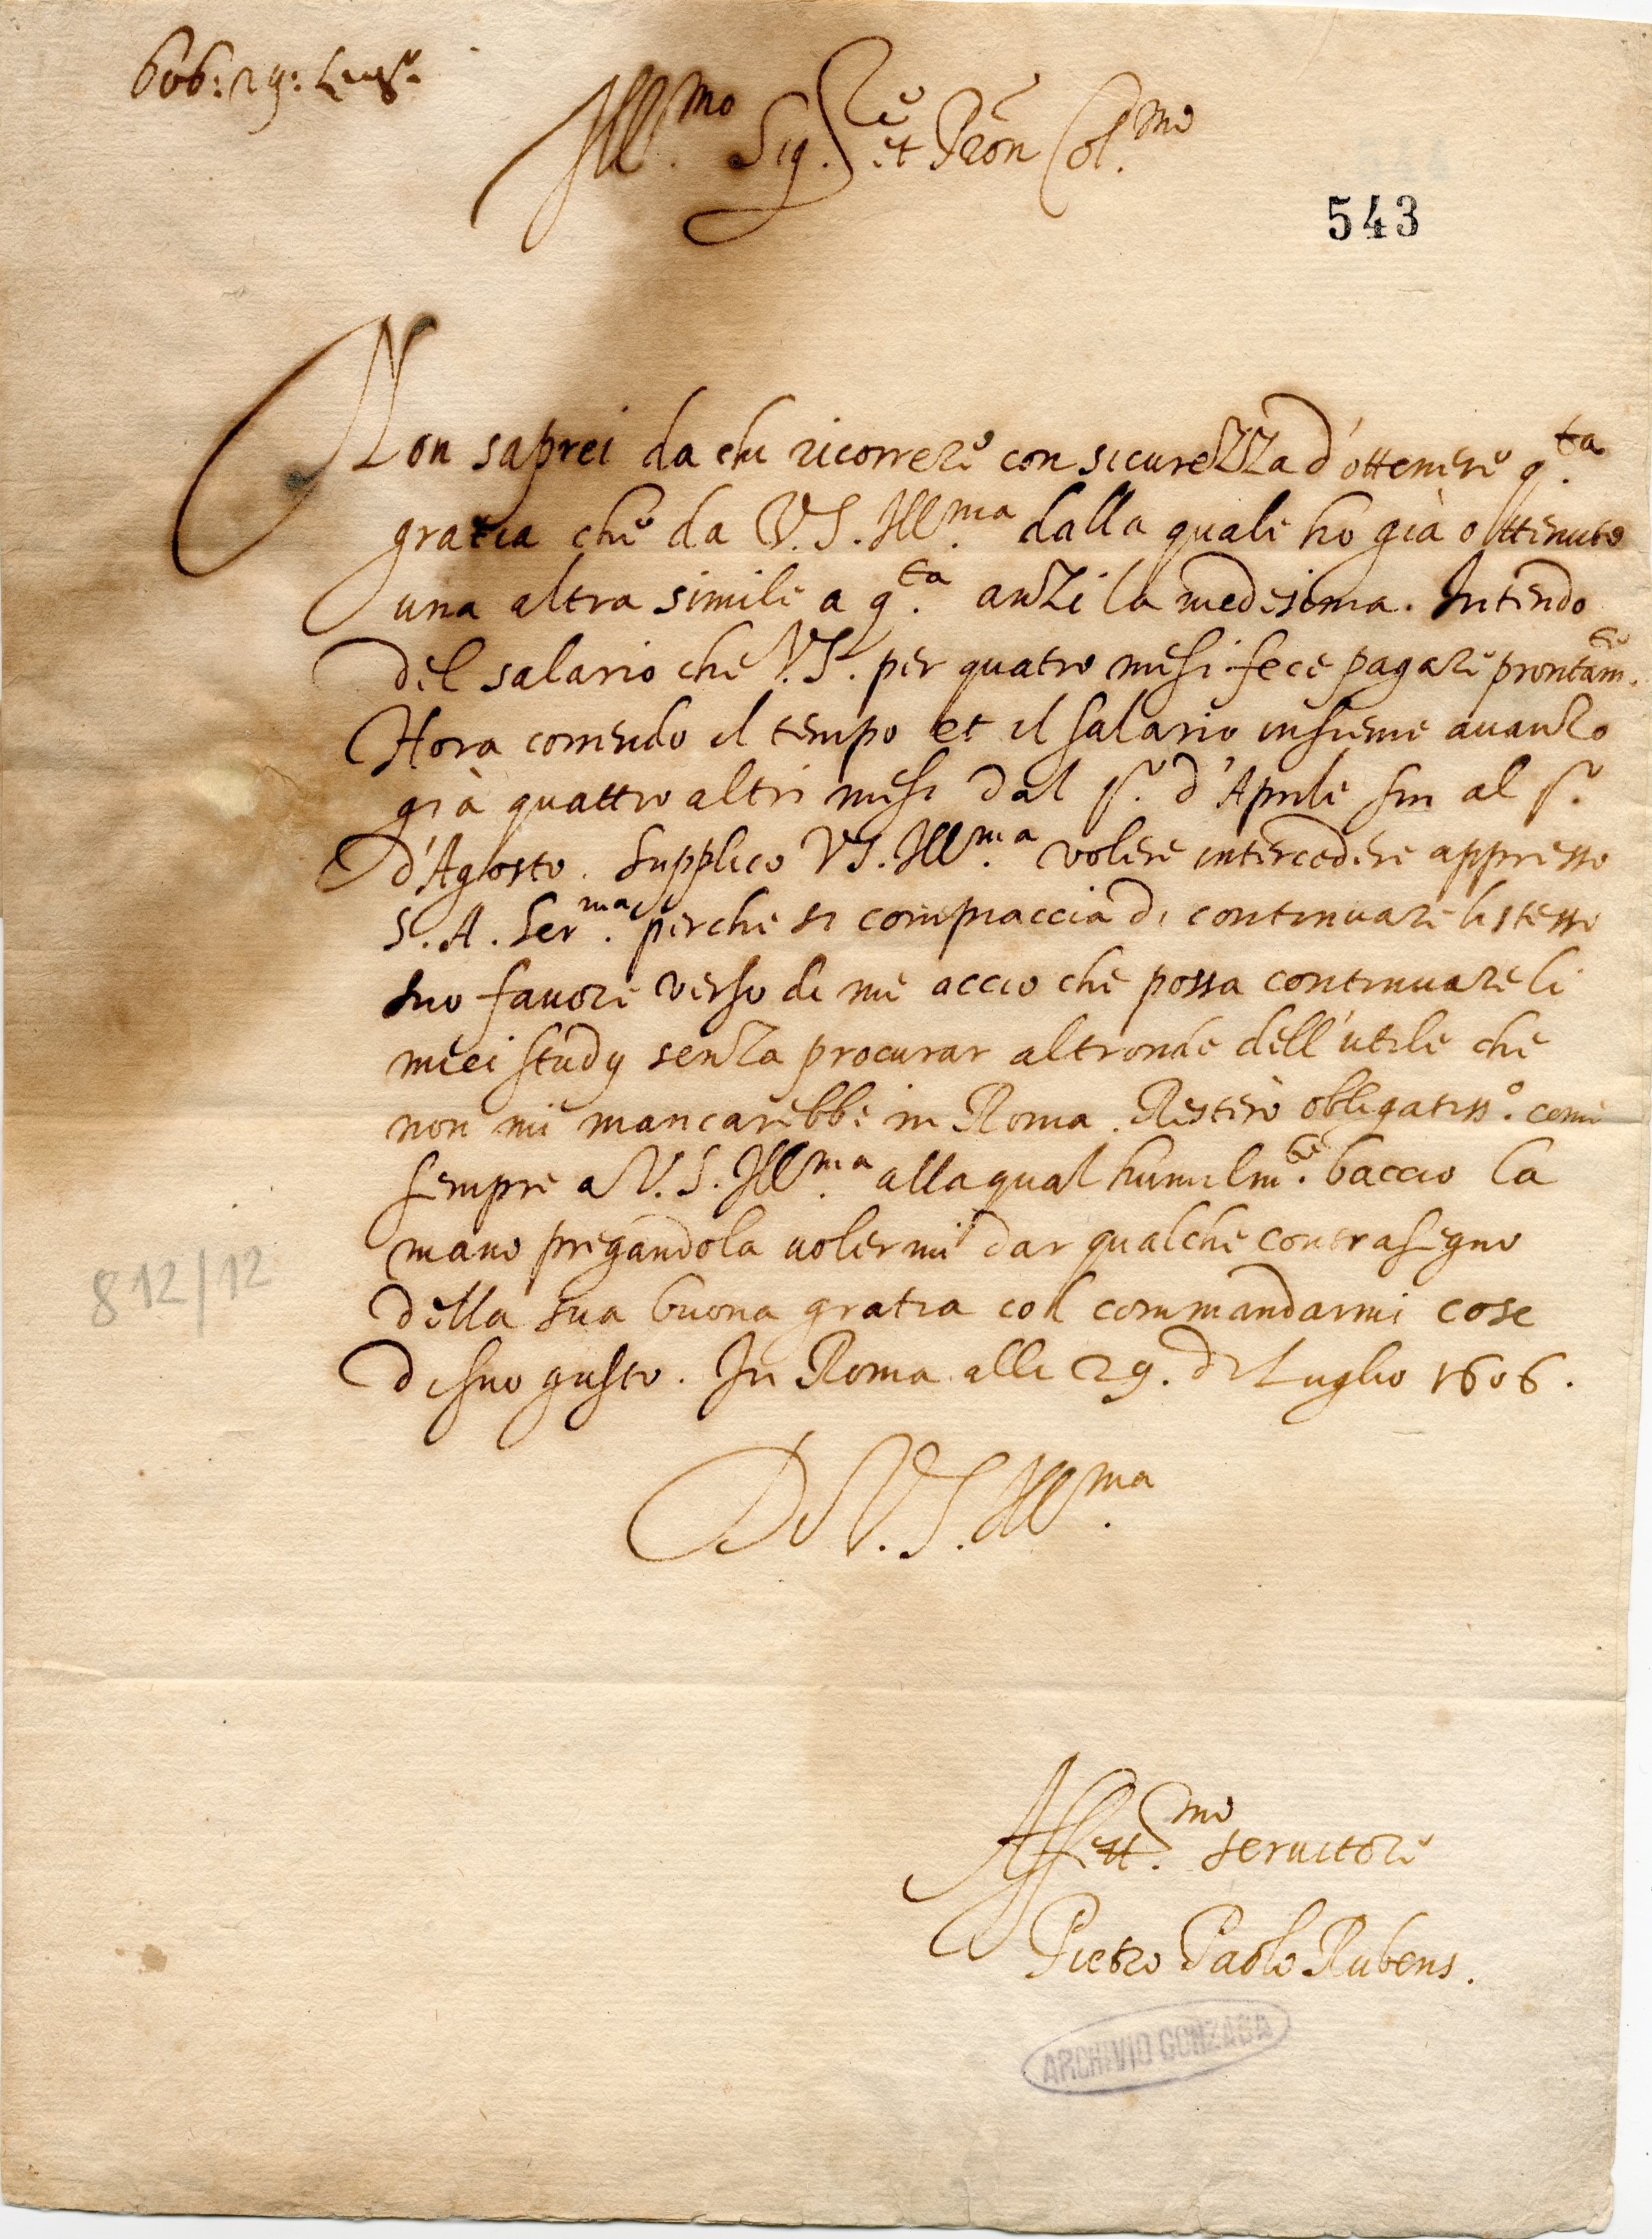 606: 29: Lug.
Ill.mo Sig.re et Prõn Col.mo
543
Non saprei da chi ricorrere con sicurezza d'ottenere q.ta
gratia che da V.S. Ill.ma dalla quale ho già ottenuto
una altra simile a q.ta anzi la medesima. Intendo
del salario che V.S. per quatro mesi fece pagare prontam.te
Hora correndo il tempo et il salario insieme avanzo
già quattro altri mesi dal p.o d'Aprile fin al p.o
d'Agosto. Supplico VS. Ill.ma volere intercedere appresso
S. A. Ser.ma perche si compiaccia di continuare listesso
suo favore verso di me accio che possa continuare li
miei study senza procurar altronde dell'utile che
non mi mancarebbe in Roma. Resterò obligatiss.o come
sempre a V.S. Ill.ma alla qual humilm.te baccio la
mano pregandola volermi dar qualche contrasegno
della sua buona gratia col commandarmi cose
di suo gusto. In Roma alli 29. di Luglio 1606.
812/12
Di V.S. Ill.ma
Affett.mo servitore
Pietro Paolo Rubens.
ARCHIVIO GONZAGA